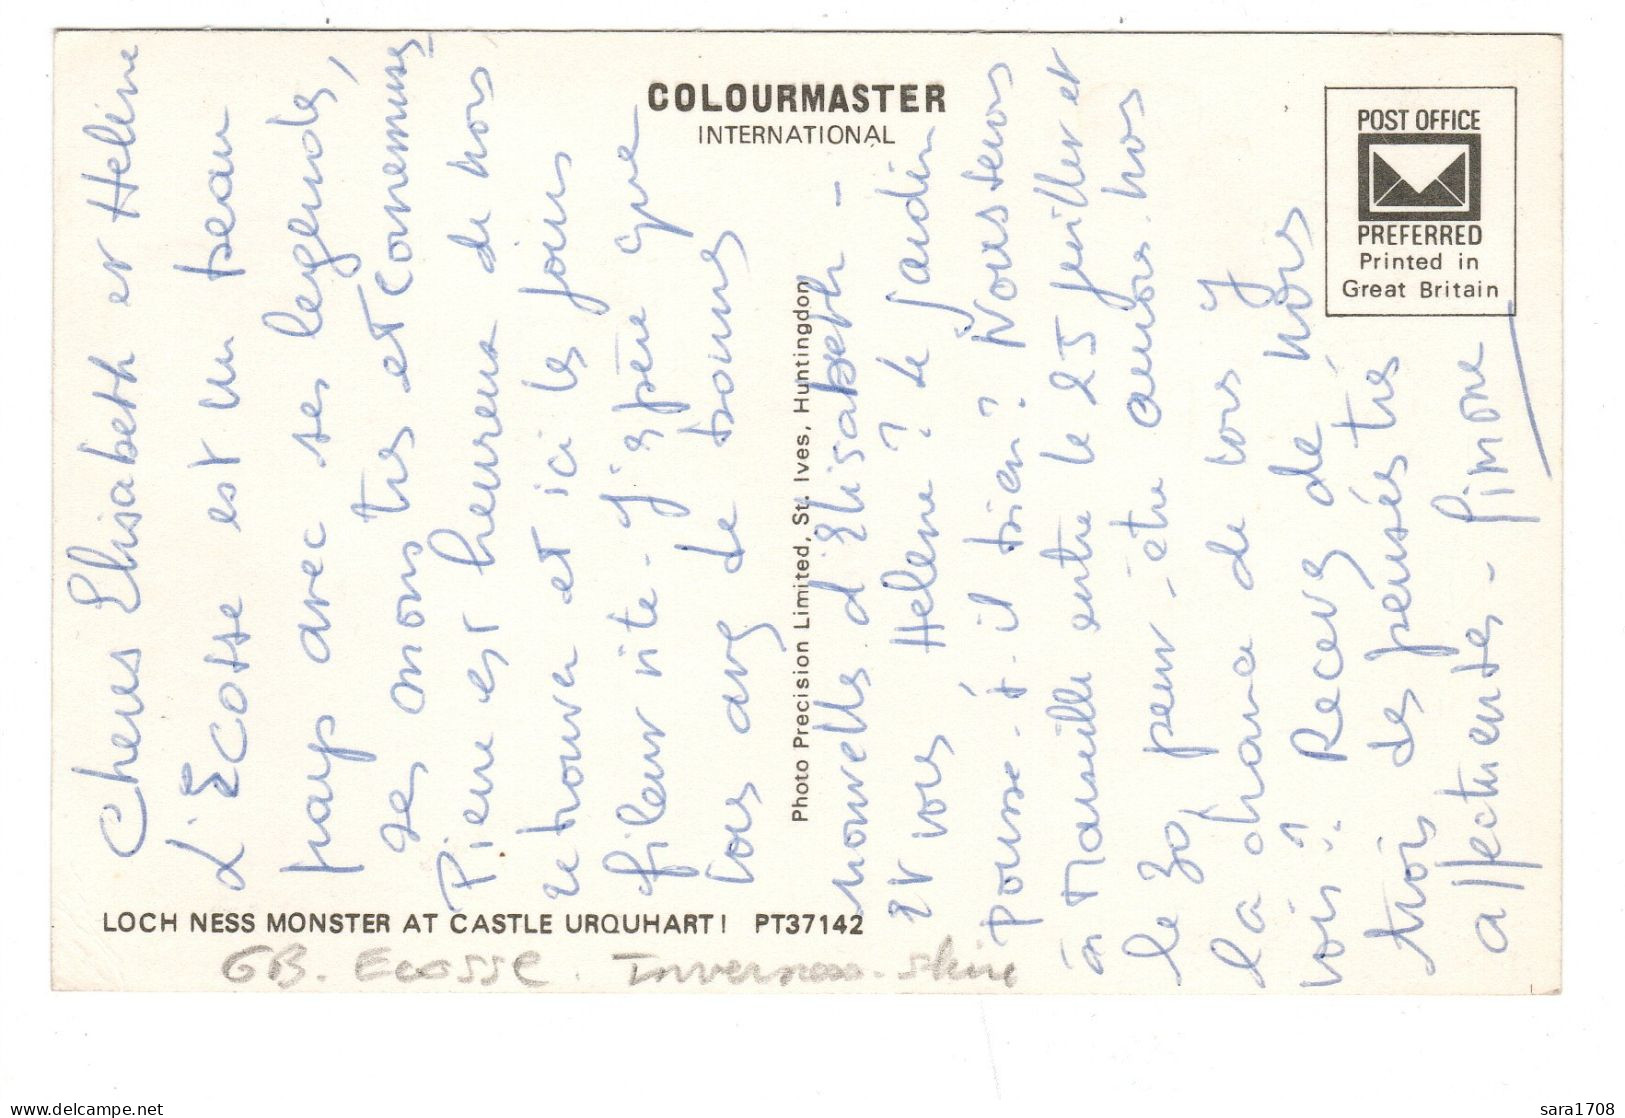 COLOURMASTER
INTERNATIONAL
POST OFFICE
PREFERRED
Printed in
Great Britain
Photo Precision Limited, St. Ives, Huntingdon
LOCH NESS MONSTER AT CASTLE URQUHART! PT37142
GB. Ecosse. Inverness-shire
Cheres Elisabeth et Hélène
L'Ecosse est un beau
pays avec ses legendes,
ses monstres et cornemuses
Pierre est heureux de nous
retrouver et ici les jours
filent vite - J'espère que
vous avez de bonnes
nouvelles d'Elisabeth -
et vous Helene? le jardin
pousse-t-il bien? Nous serons
à Marseille entre le 25 juillet et
le 30 peut-être aurons-nous
la chance de vous y
voir? Recevez de nous
trois des pensées très
affectueuses - Simone
sara1708